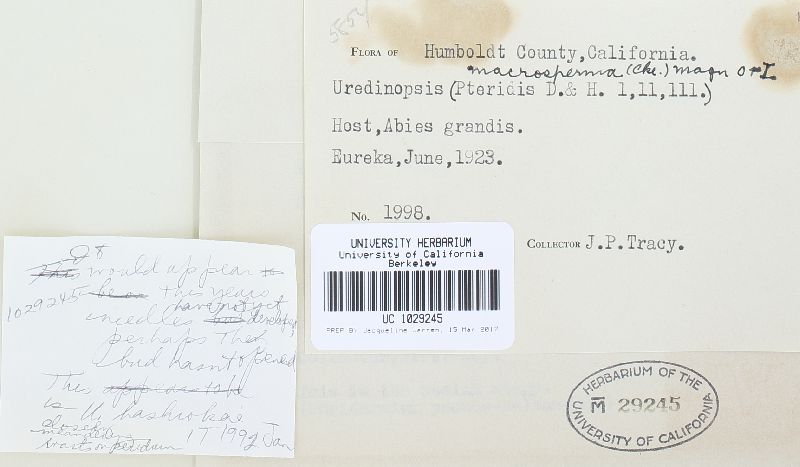 Flora of Humboldt County, California.
macrosperma (Cke.) Magn O & I
Uredinopsis (Pteridis D.& H. l,ll,lll.)
Host, Abies grandis.
Eureka, June, 1923.
No. 1998.
Collector J.P.Tracy.
UNIVERSITY HERBARIUM
University of California
Berkeley
UC 1029245
PREP BY Jacqueline Warren, 15 Mar 2017
HERBARIUM OF THE
M 29245
UNIVERSITY OF CALIFORNIA
would appear to
1029245 be on this years
have not yet
needles developed
perhaps the
bud hasn't opened
This appears to be
is U. hashiokai
closely
on peridium 1992 Jan